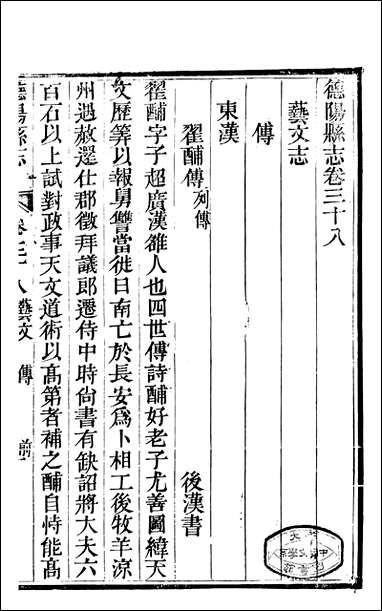 德陽縣志卷三十八
藝文志
傳
東漢
翟酺傳 列傳 後漢書
翟酺字子超廣漢雒人也四世傳詩酺好老子尤善圖緯天
文歷算以報舅讐當徙日南亡於長安爲卜相工後牧羊涼
州遇赦還仕郡徵拜議郎遷侍中時尙書有缺詔將大夫六
百石以上試對政事天文道術以高第者補之酺自恃能高
德陽縣志 卷三十八 藝文 傳 前一